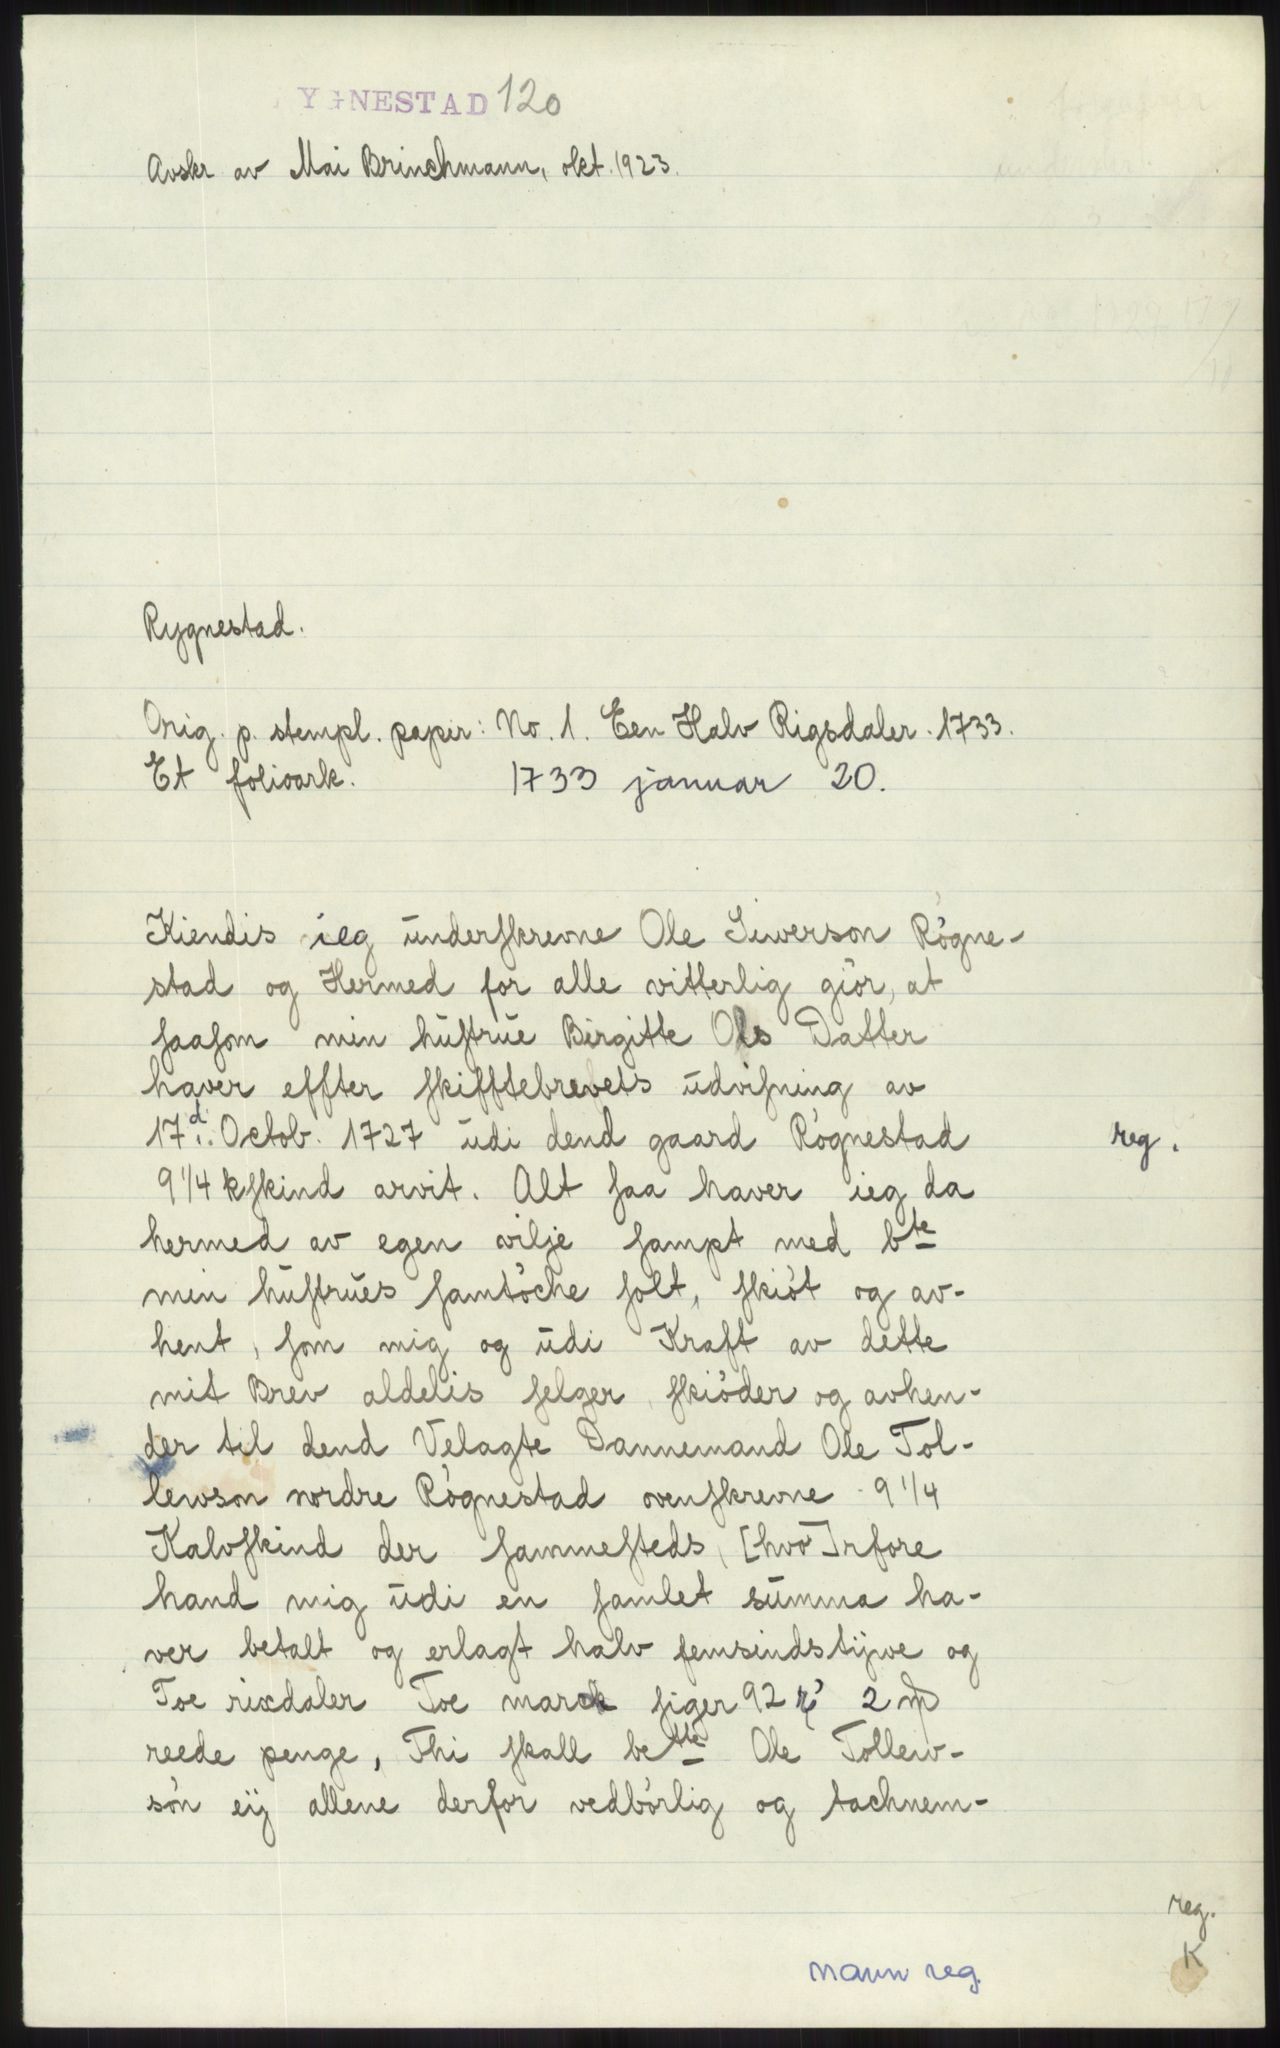 YGNESTAD 120
Avskr av Mai Brinchmann, okt. 1923.
Rygnestad.
Orig. p. stempl. papir: No. 1. Een Halv Rigsdaler. 1733.
Et folioark. 1733 januar 20.
Kiendis ieg ūnderſkrevne Ole Siverson Røgne-
stad og Hermed for alle vitterlig giör, at
ſaaſom min hūſtrūe Birgitte Ols Datter
haver effter ſkifftebrevets ūdviſning av
17d.. Octob. 1727 ūdi dend gaard Røgnestad
9 1/4 kſkind arvit. Alt ſaa haver ieg da
hermed av egen vilje ſampt med bte
min hūſtrūes ſamtöche ſolt, ſkiöt og av-
hent, ſom mig og ūdi Kraft av dette
mit Brev aldelis ſelger, ſkiöder og avhen-
der til dend Velagte Dannemand Ole Tol-
levson nordre Røgnestad ovenſkrevne 9 1/4
Kalvſkind der ſammeſteds, [hvo]rfore
hand mig ūdi en ſamlet sūmma ha-
ver betalt og erlagt halv femsindstijve og
Toe rixdaler Toe marck ſiger 92 2
reede penge, Thi ſkall bette Ole Tollew-
són eij allene derfor vedbórlig og tachnem-
reg.
reg.
K
navn reg.